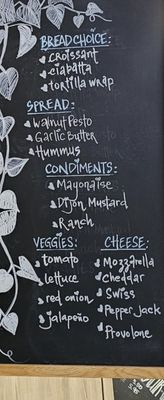 BREAD CHOICE:
Croissant
ciabatta
tortilla wrap
SPREAD:
Walnut Pesto
Garlic Butter
Hummus
CONDIMENTS:
Mayonaise
Dijon Mustard
Ranch
VEGGIES:
tomato
lettuce
red onion
jalapeño
CHEESE:
Mozzarella
Cheddar
Swiss
Pepper Jack
Provolone